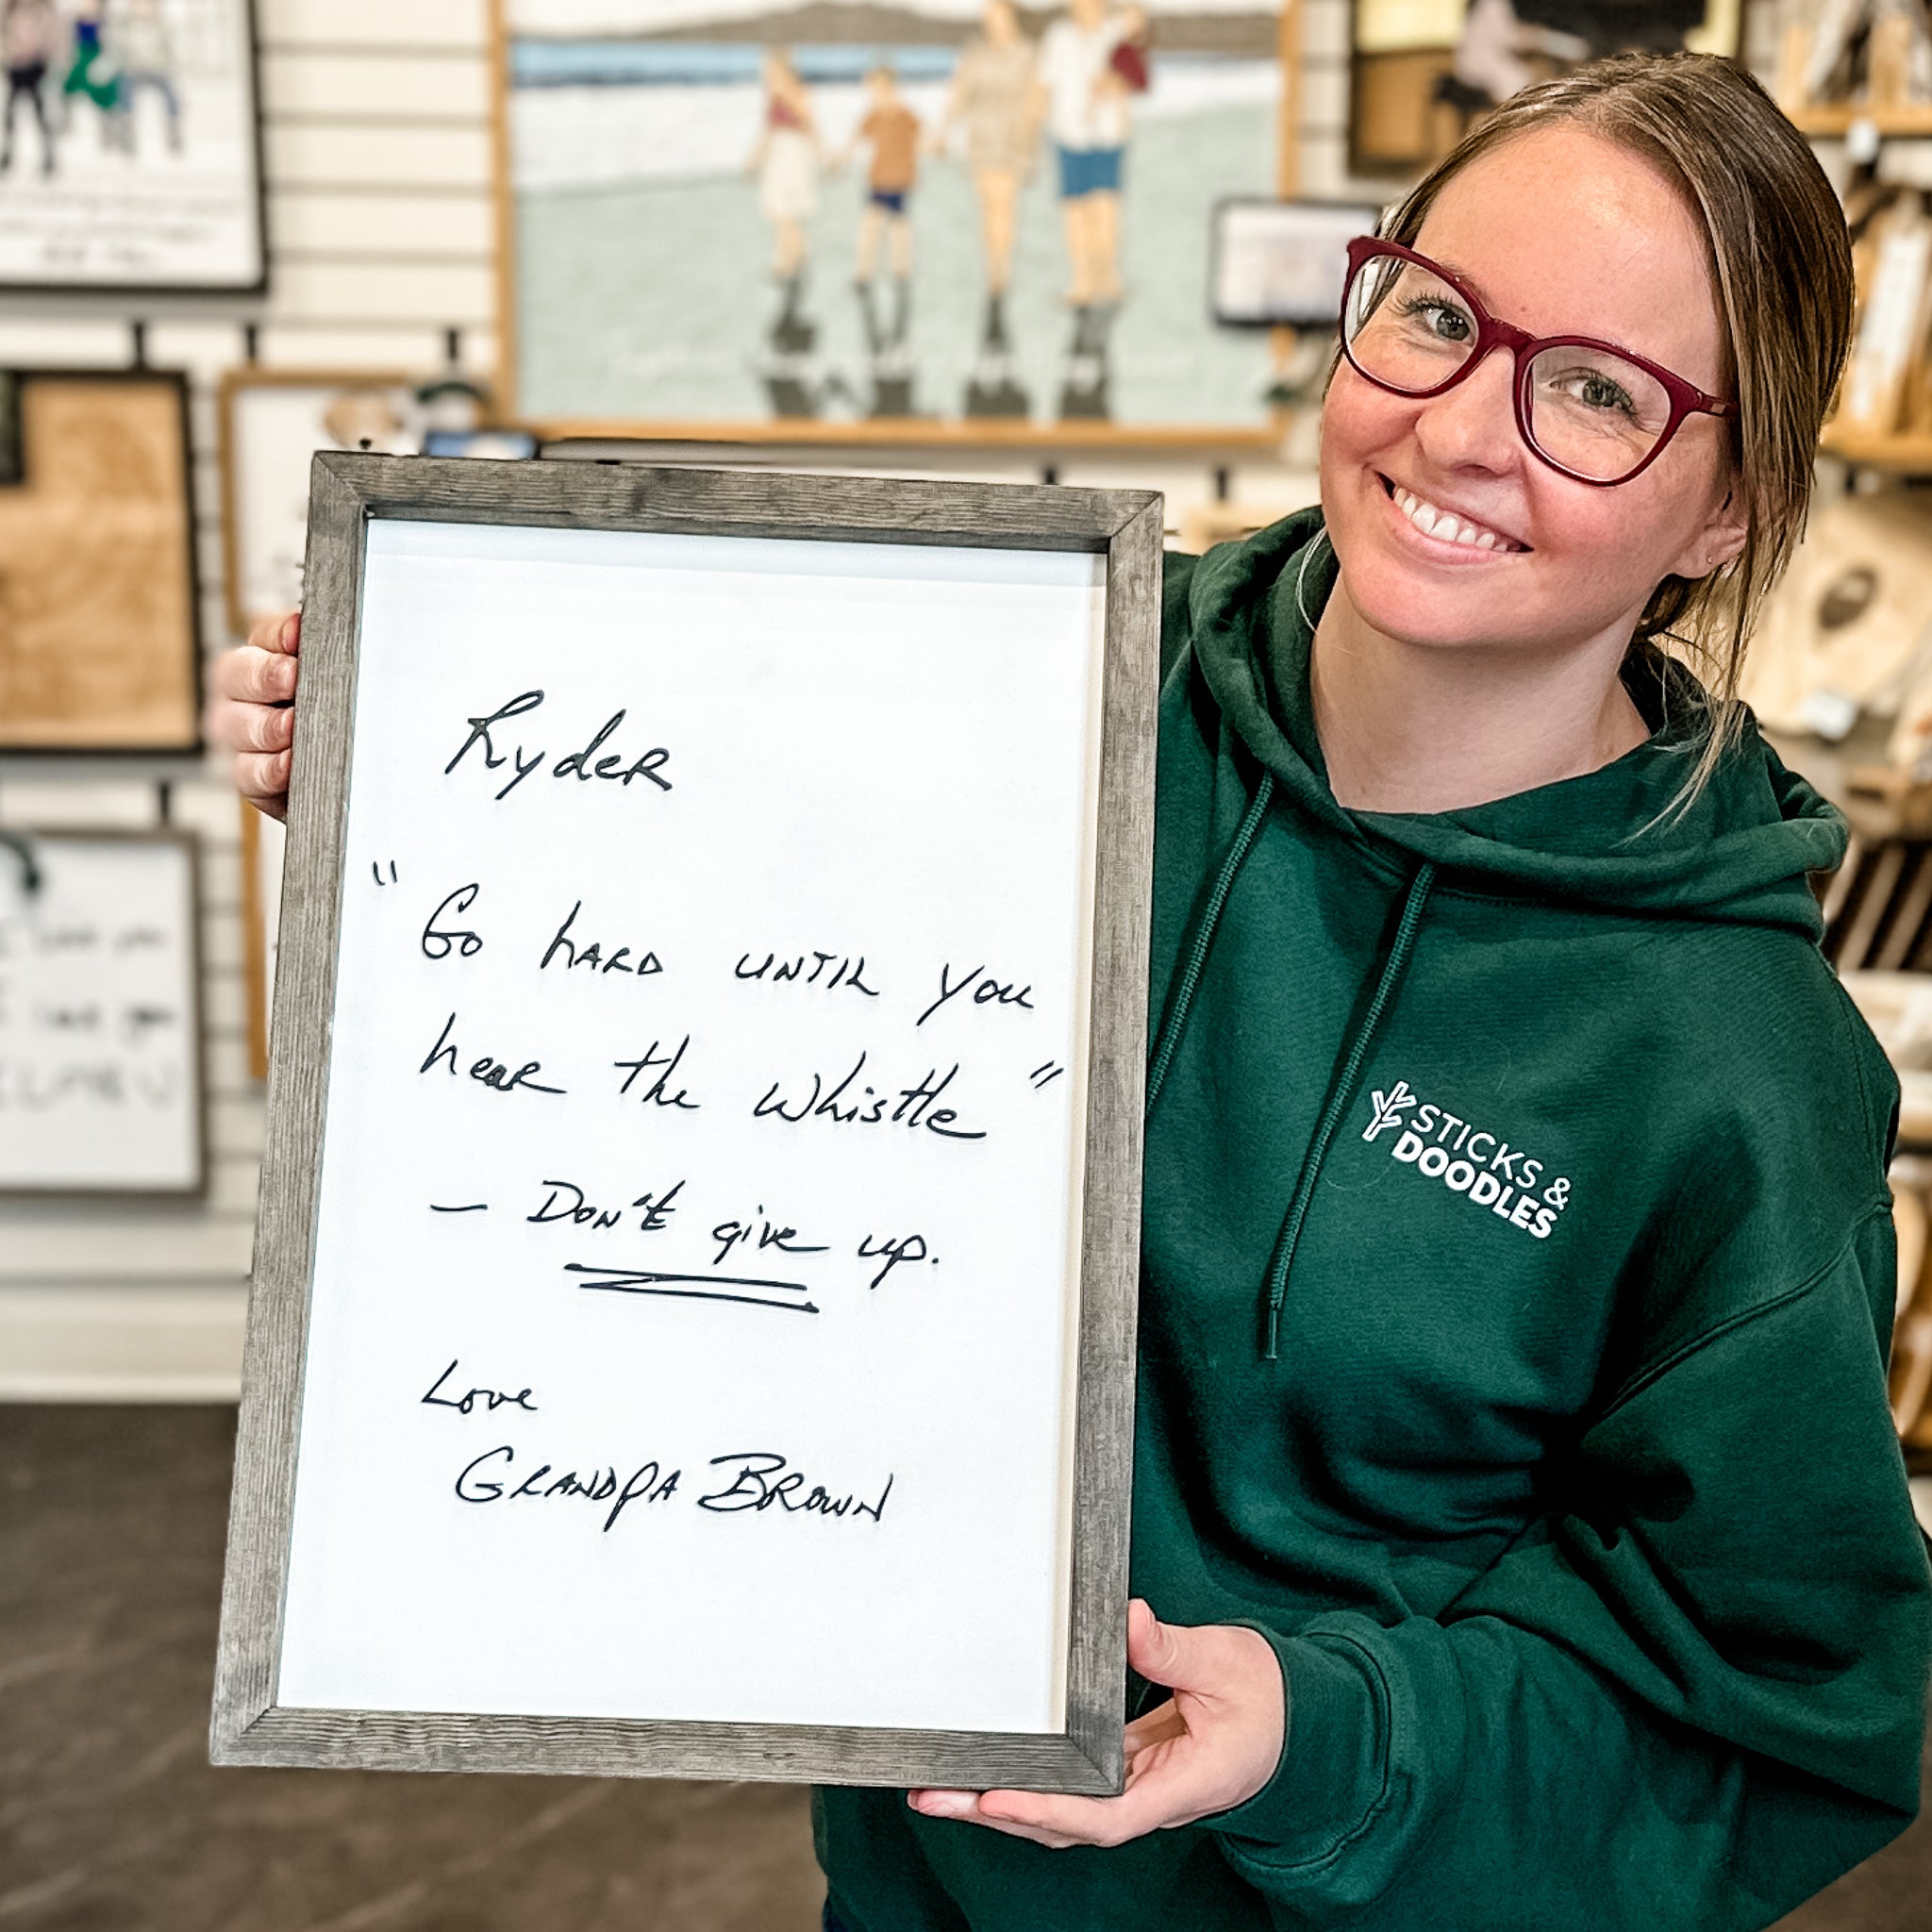 Ryder
"Go hard until you
hear the whistle"
— Don't give up.
Love
Grandpa Brown
STICKS &
DOODLES